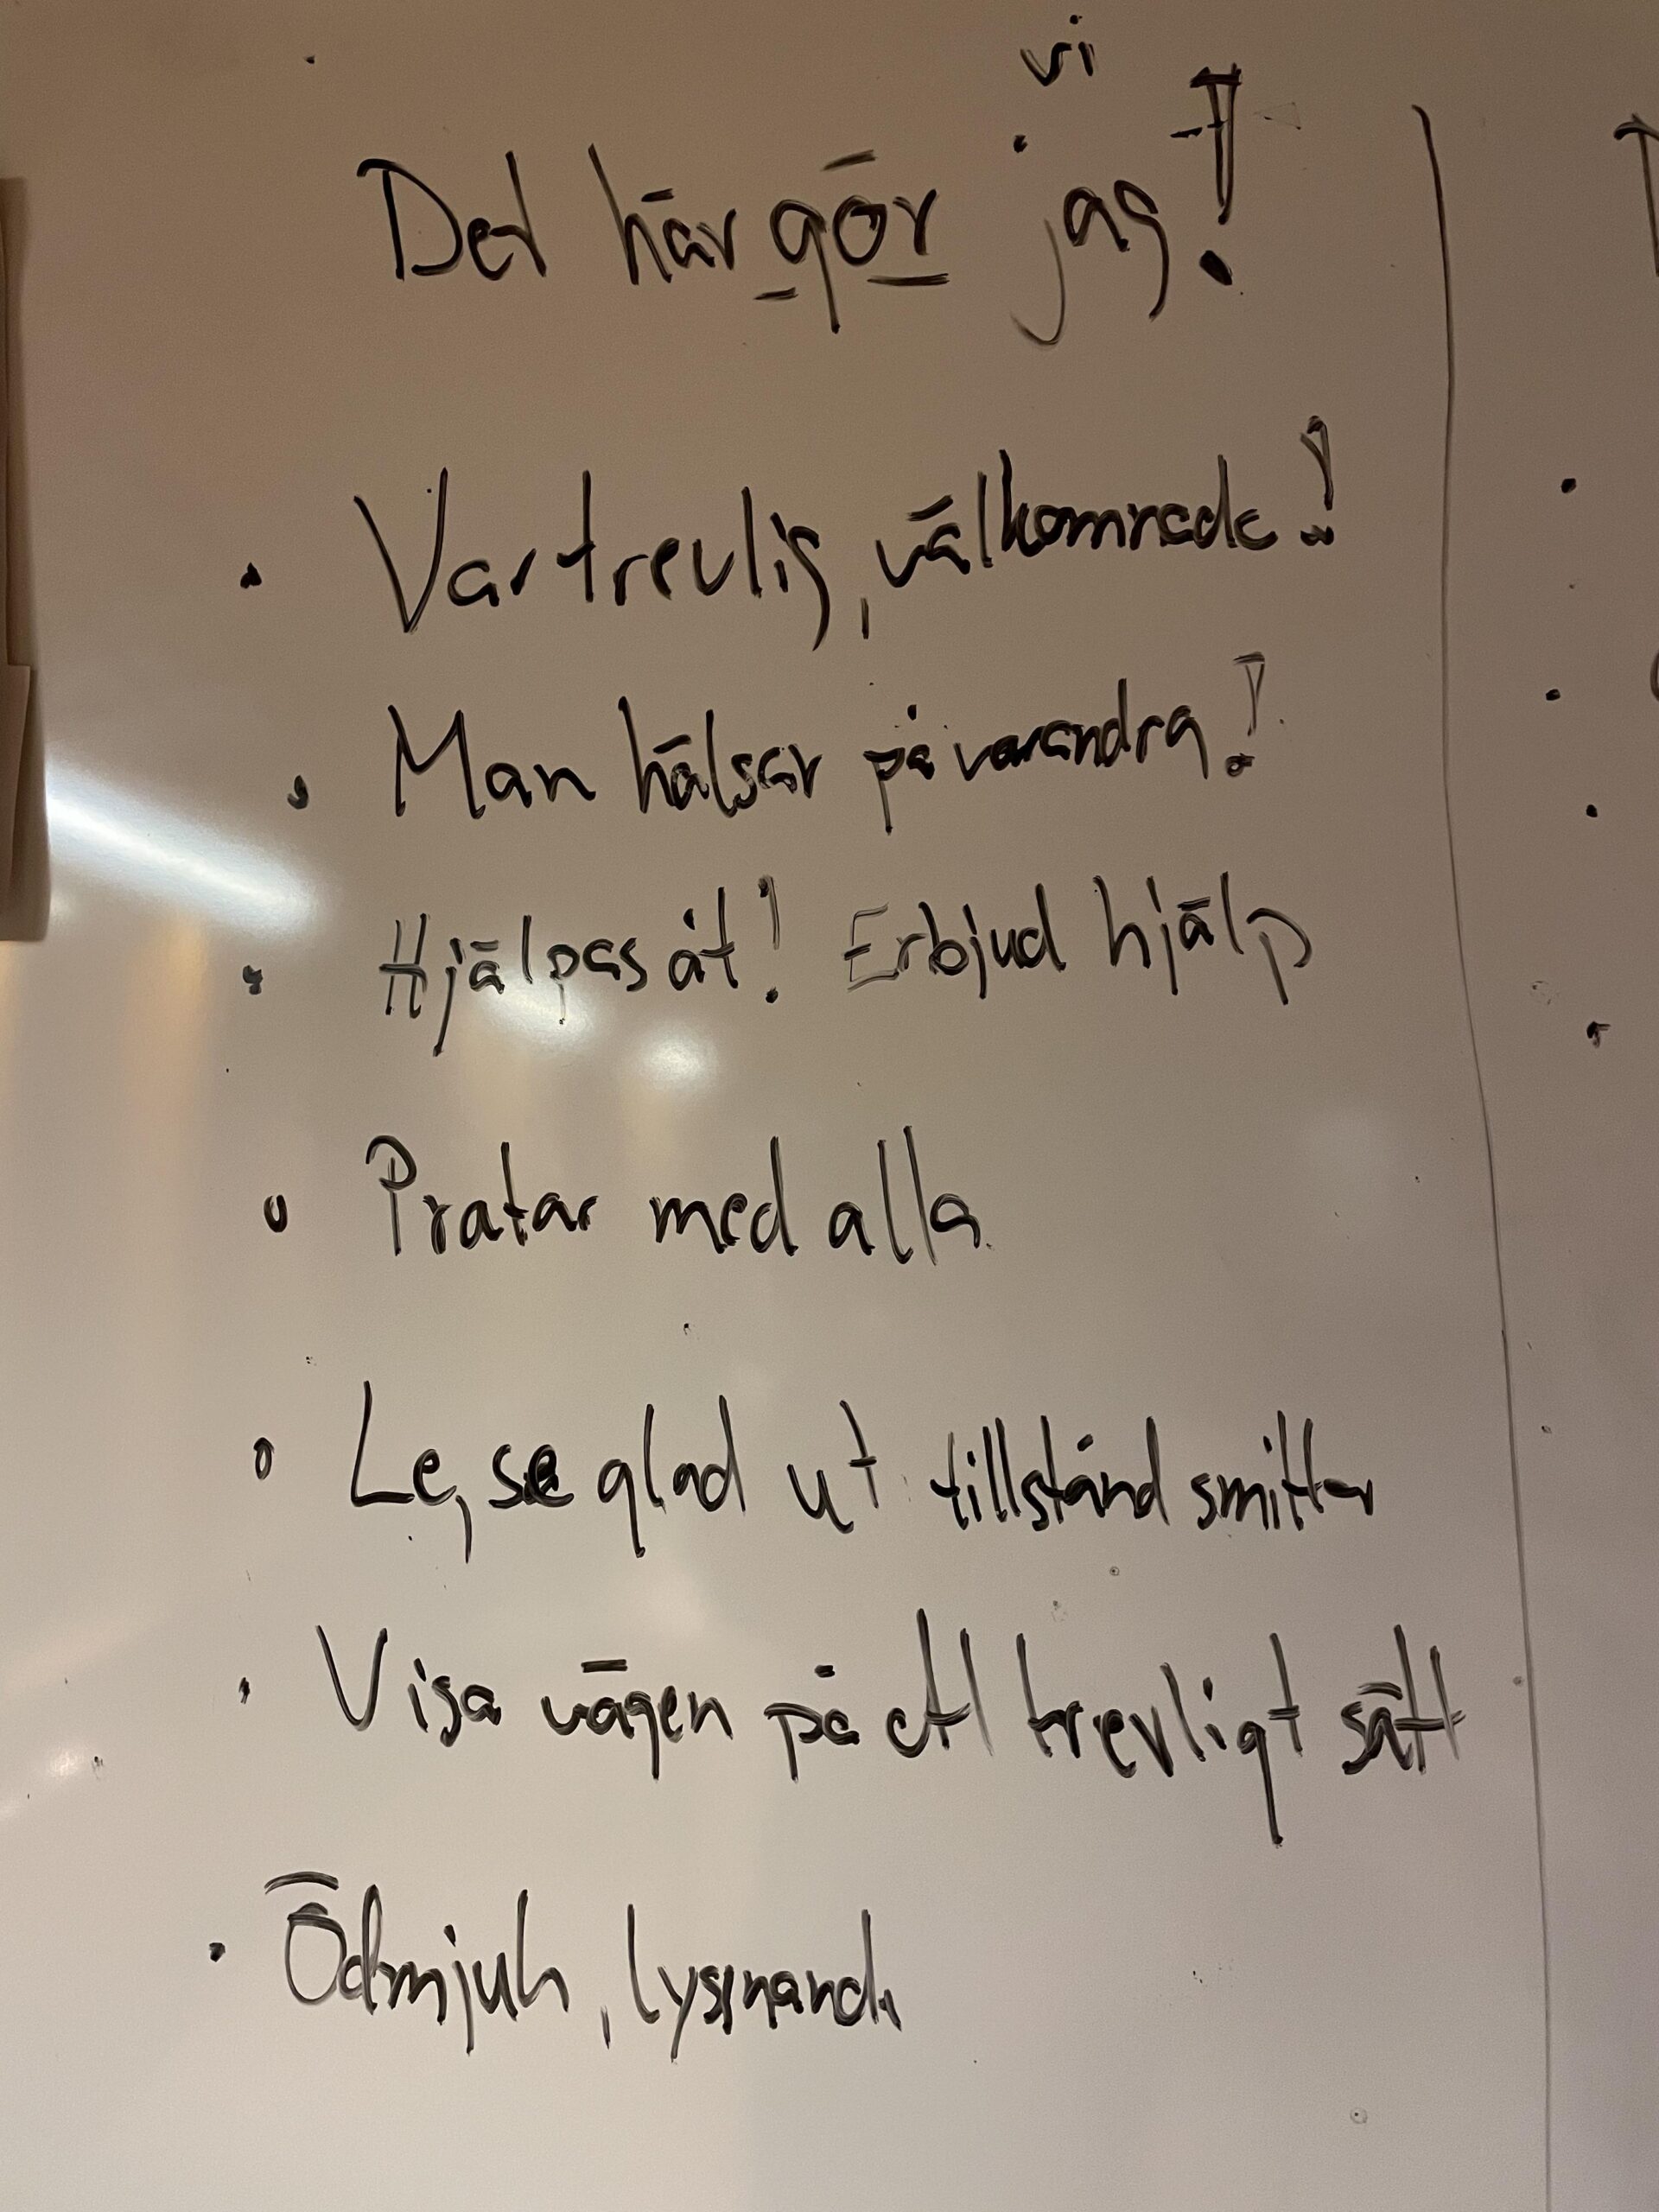 vi
Det här gör jag!
• Var trevlig, välkomnade!
• Man hälsar på varandra!
• Hjälpas åt! Erbjud hjälp
• Pratar med alla
• Le, se glad ut tillstånd smitter
• Visa vägen på ett trevligt sätt
• Ödmjuk, lyssnande